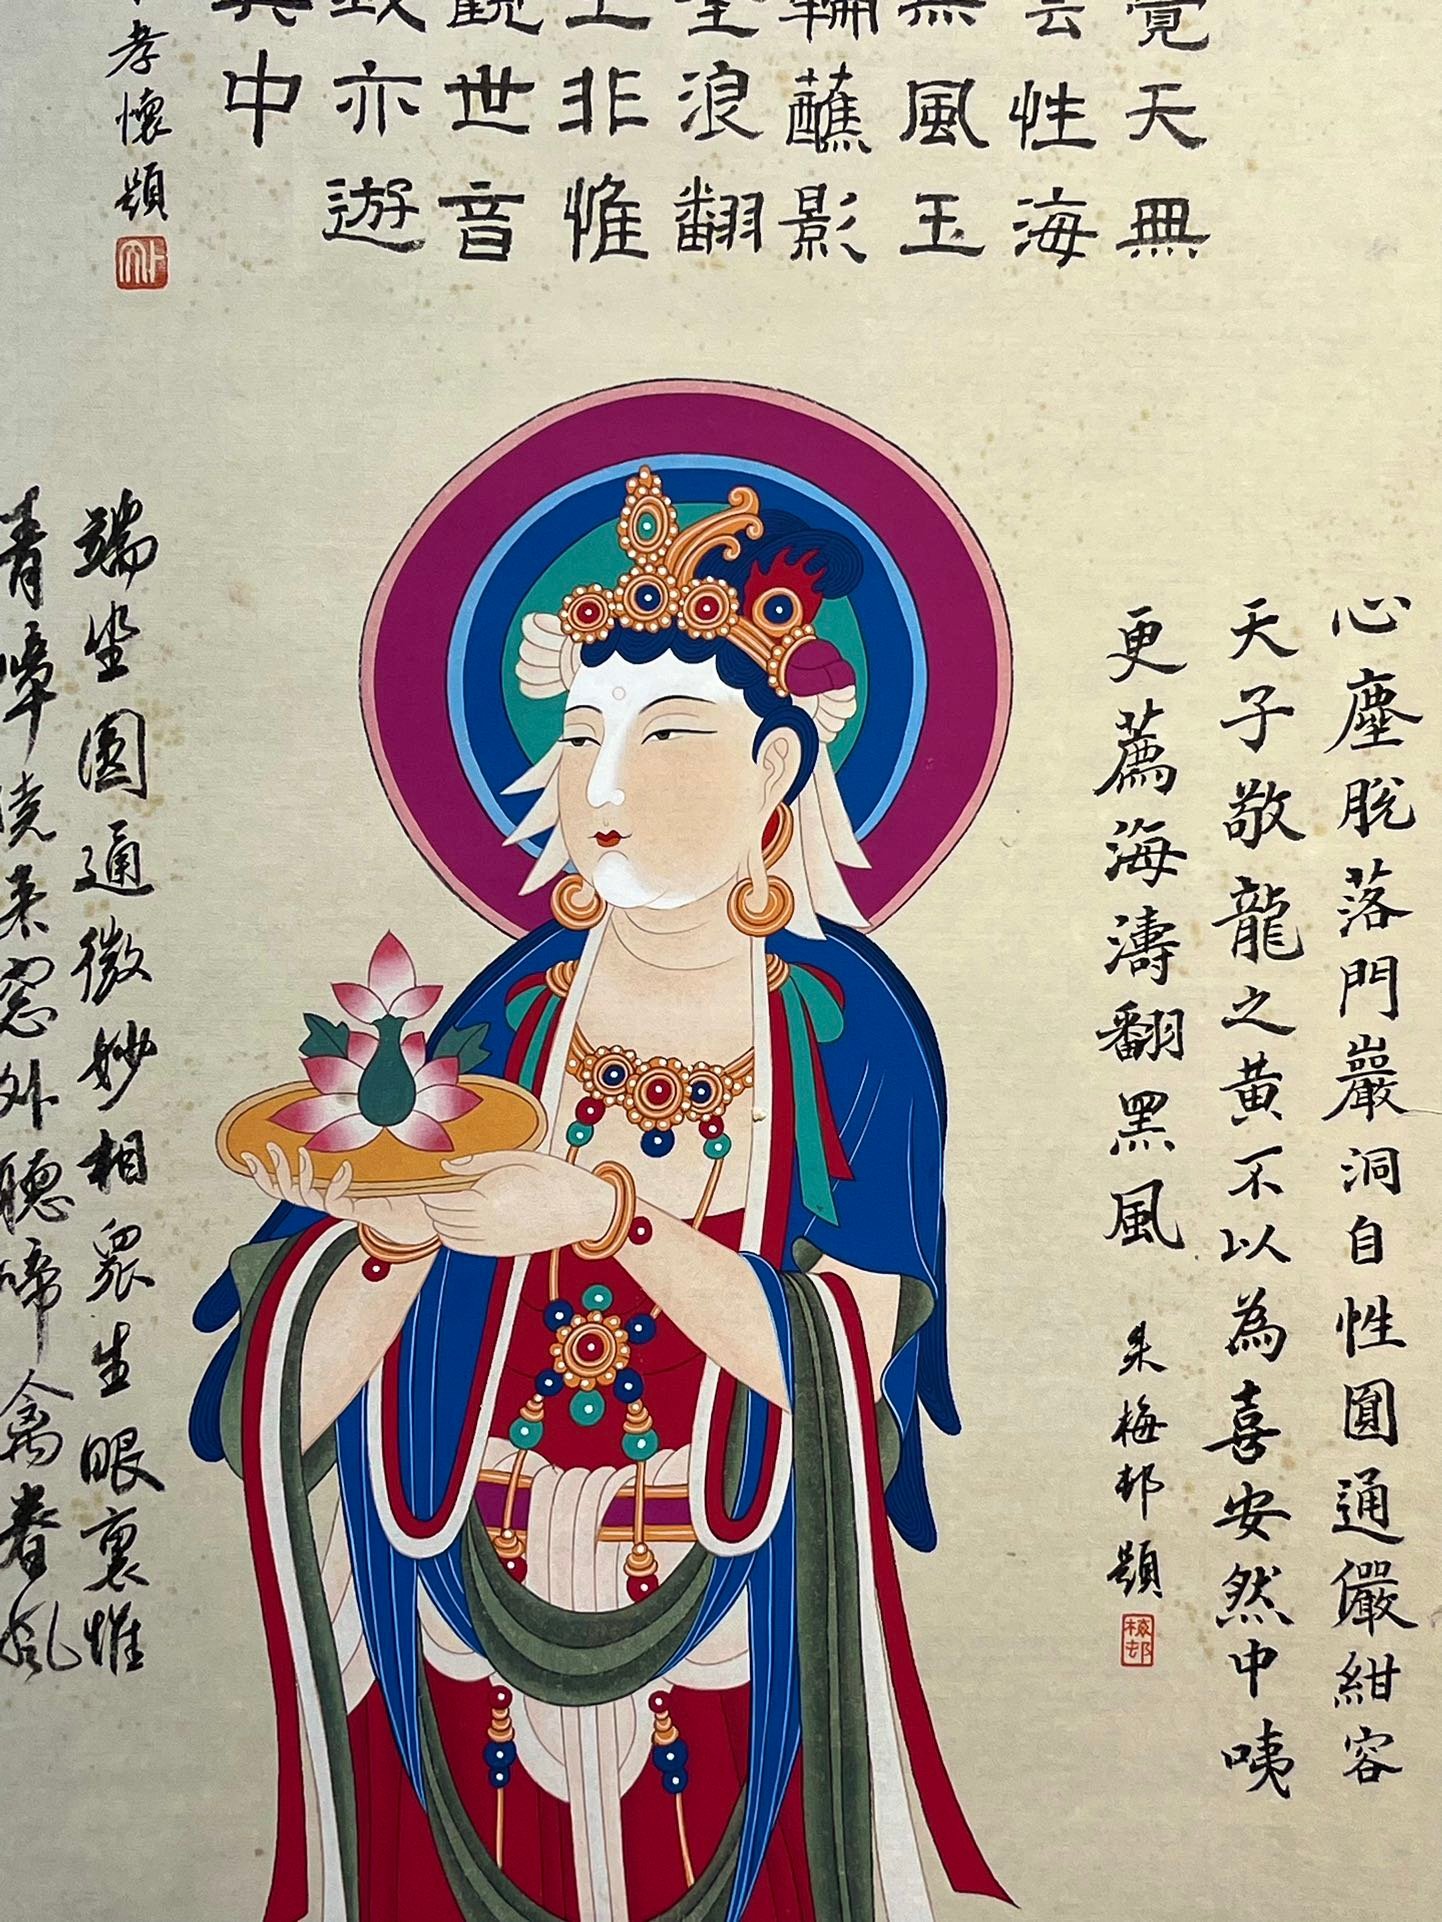 覺天無
雲性海
無風玉
輪蘸影
浪翻
上非惟
觀世音
亦遊
其中
孝懷題
心塵脫落門巖洞自性圓通儼紺容
天子敬龍之黃不以為喜安然中咦
更薦海濤翻黑風
朱梅邨題
梅邨
端坐圓通微妙相眾生眼裏惟
青
曉來窓外聽啼禽春風